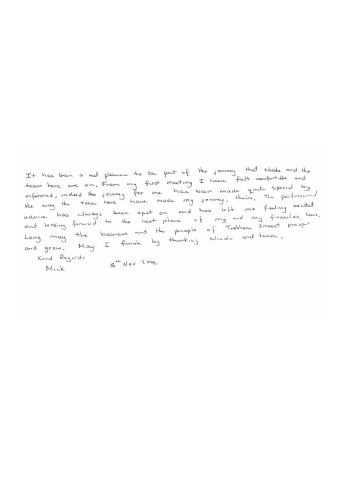 It has been a real pleasure to be part of the journey that and the
team here are on. From my first meeting I have felt comfortable and
informed, indeed the journey for me has been made quite special by
the way the team here have made my journey, theirs. The
advice has always been spot on and has left me feeling excited
and looking forward to the next phase of my and my families lives.
Long may the business and the people of Invest prosper
and grow. May I finish by thanking and team.
Kind Regards
Mick 5th Nov